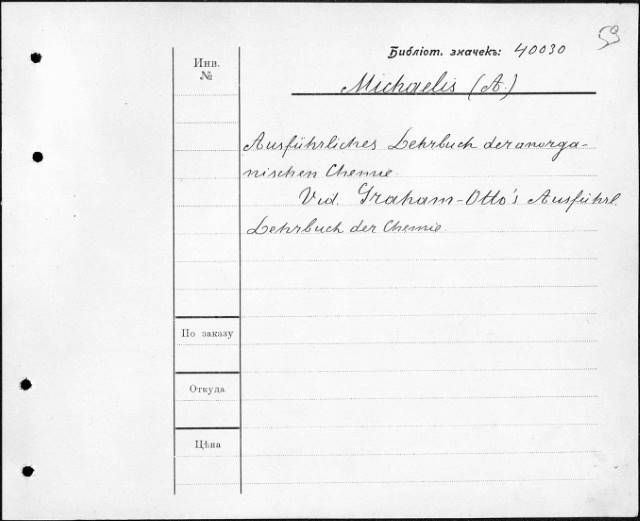 59
Библіот. значекъ: 40030
Инв.
№
Michaelis (A.)
Ausführliches Lehrbuch der anorga-
nischen Chemie.
Vid. Graham-Otto's Ausführl.
Lehrbuch der Chemie.
По заказу
Откуда
Цѣна